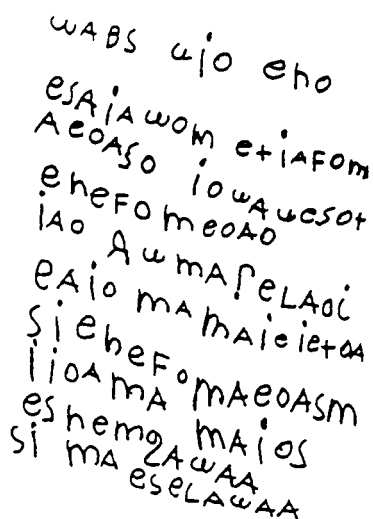 wABS uio eno
esAiAwom etiAFom
AeoASo iowAwesot
eneFomeoAo
iAo AwmAreLAoi
eAio mAmAieietoA
sieneFomAeoAsm
iioAmA mAios
esnemqAwAA
si mA eseLAwAA